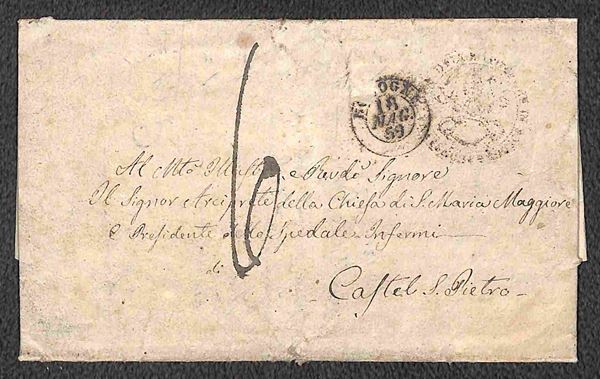 BOLOGNA
18
MAG
59
Al Mto Illustre e Revdo Signore
Il Signor Arciprete della Chiesa di S. Maria Maggiore
e Presidente dello Spedale Infermi
di
Castel S. Pietro